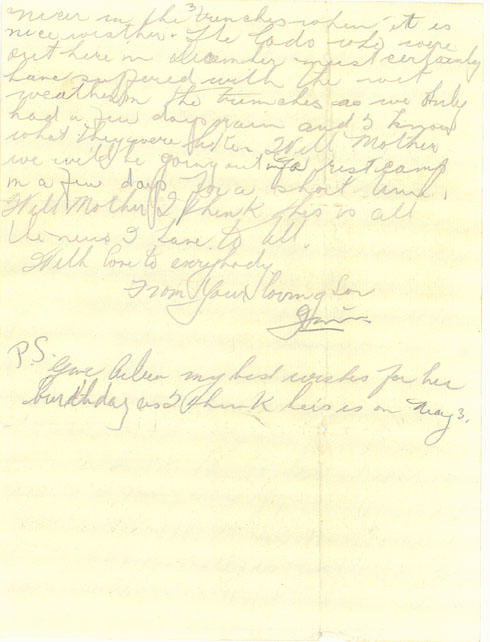 3
nicer in the trenches when it is
nice weather. The lads who were
out here in December must certainly
have suffered with the wet
weather in the trenches as we only
had a few days rain and I know
what they were like then. Well Mother
we will be going out to a rest camp
in a few days for a short time.
Well Mother I think this is all
the news I have to tell.
With love to everybody
From Your loving Son
P.S.
Give my best wishes for her
birthday as I think hers is on May 3.